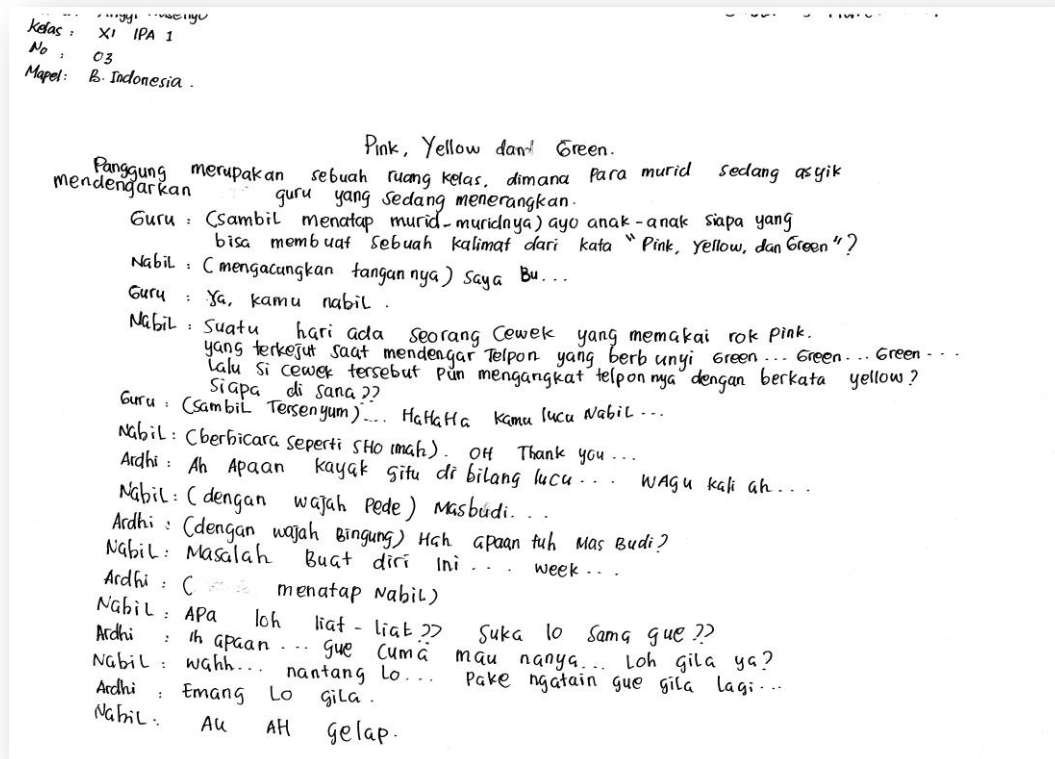 Kelas : XI IPA 1
No : 03
Mapel : B. Indonesia .
Pink, Yellow dan Green.
Panggung merupakan sebuah ruang kelas, dimana Para murid sedang asyik
mendengarkan guru yang sedang menerangkan.
Guru : (sambil menatap murid-muridnya) ayo anak-anak siapa yang
bisa membuat sebuah kalimat dari kata "Pink, Yellow, dan Green"?
Nabil : (mengacungkan tangannya) Saya Bu...
Guru : Ya, kamu nabil .
Nabil : Suatu hari ada seorang Cewek yang memakai rok Pink.
yang terkejut saat mendengar Telpon yang berbunyi Green ... Green ... Green ...
Lalu si cewek tersebut pun mengangkat telponnya dengan berkata yellow?
Siapa di sana ??
Guru : (Sambil Tersenyum) .... HaHaHa Kamu lucu Nabil ...
Nabil : (berbicara seperti SHO imah). OH Thank you ...
Ardhi : Ah Apaan kayak gitu di bilang lucu ... WAGU kali ah ...
Nabil : (dengan wajah Pede) Masbudi. . .
Ardhi : (dengan wajah Bingung) Hah apaan tuh Mas Budi?
Nabil : Masalah Buat diri Ini . . . week ...
Ardhi : ( menatap Nabil)
Nabil : APa loh liat - liat ?? Suka lo Sama gue ??
Ardhi : Ih apaan ... gue Cuma mau nanya... Loh gila ya?
Nabil : wahh... nantang Lo ... Pake ngatain gue gila lagi...
Ardhi : Emang Lo gila .
Nabil : AU AH gelap.